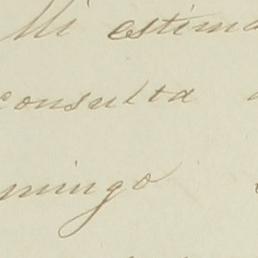 Mi estima
consulta
mingo